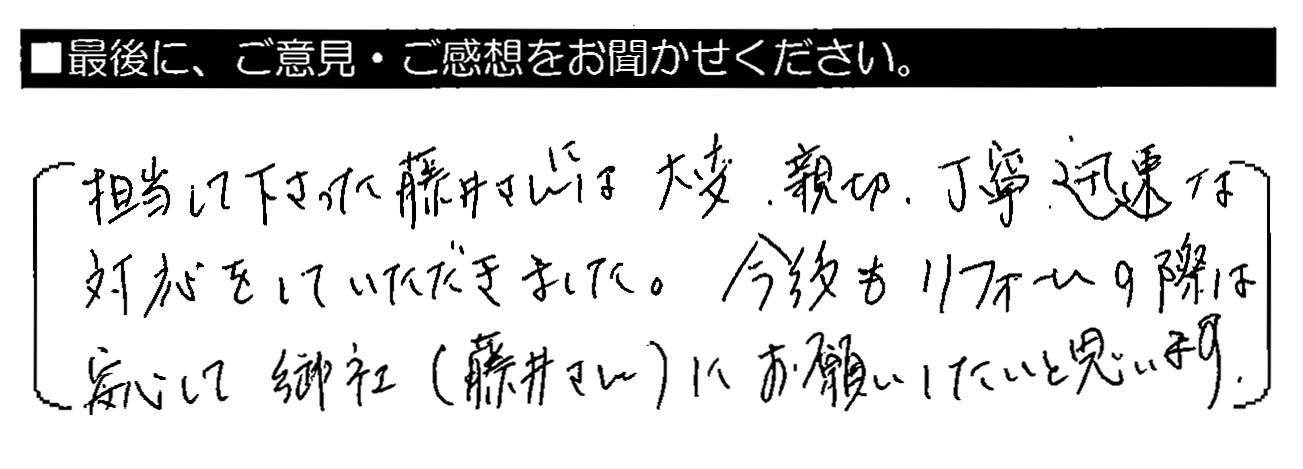 ■最後に、ご意見・ご感想をお聞かせください。
担当して下さった藤井さんには大変、親切、丁寧、迅速な
対応をしていただきました。今後もリフォームの際は
安心して御社(藤井さん)にお願いしたいと思います。